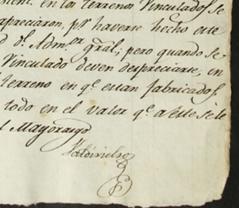 en los Terrenos Vinculados se
apreciaron, pr. haverse hecho este
d Dn. Admor. gral; pero quando se
Vinculado deven despreciarse, en
Terreno en qe. estan fabricados,
todo en el valor qe. a este se le
l Mayorazgo